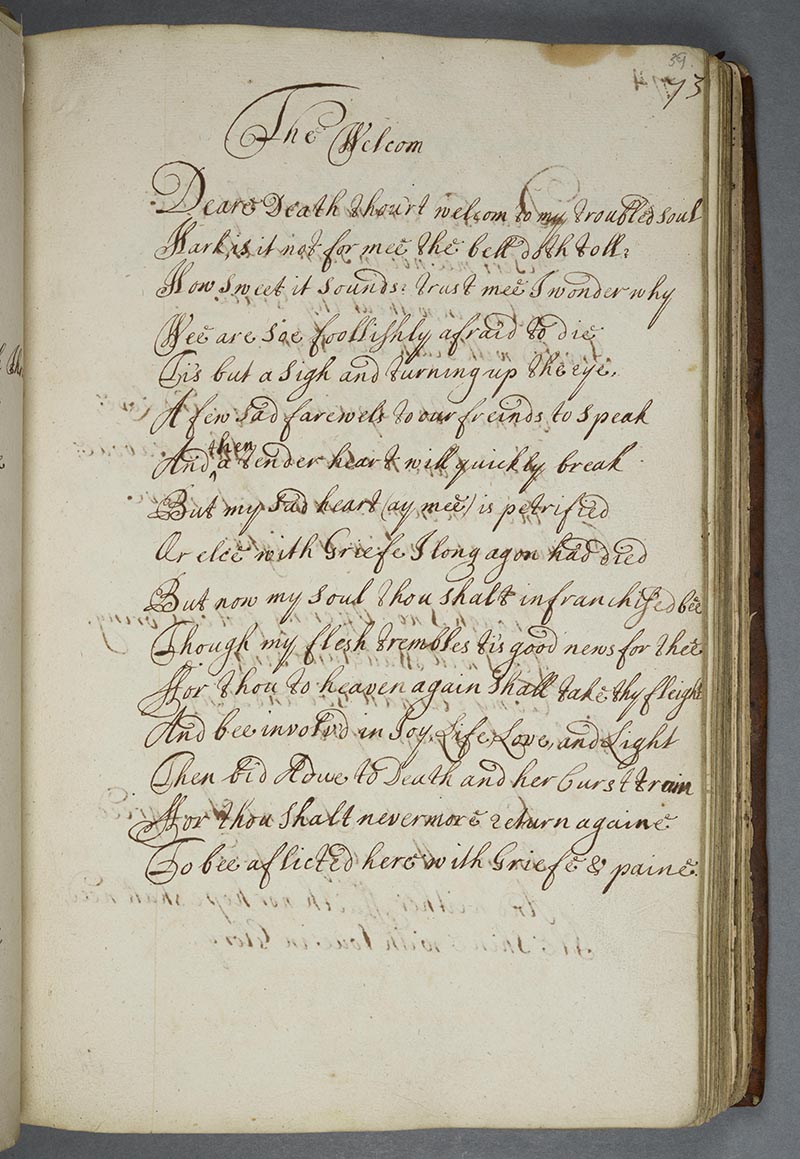 39
73
The Welcom
Deare Death thou'rt welcom to my troubled soul
Hark is it not for mee the bell doth toll?
How sweet it sounds: trust mee I wonder why
Wee are soe foollishly afraid to die
Tis but a sigh and turning up the eye,
A few sad farewels to our freinds to speak
And ^then a tender heart will quickly break
But my sad heart (ay mee) is petrified
Or elce with Griefe I long agon had died
But now my soul thou shalt infranchised bee
Though my flesh trembles t'is good news for thee
For thou to heaven again shall take thy fleight
And bee involv'd in Joy, Life, Love, and Light
Then bid Adue to Death and her Curst train
For thou shalt nevermore return againe
To bee aflicted here with Griefe & paine.